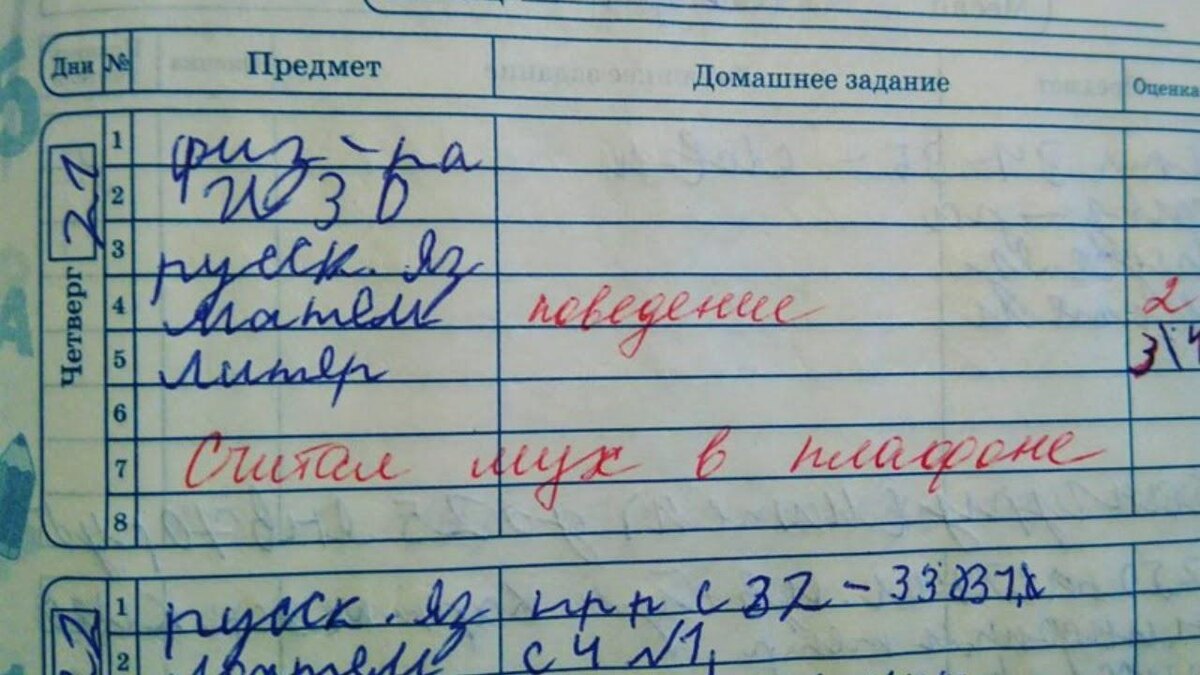 Дни № Предмет Домашнее задание Оценка
Четверг 21
1 физ-ра
2 ИЗО
3 русск. яз
4 матем поведение 2
5 литер 3\4
6
7 Считал мух в плафоне
8
22
1 русск. яз с 32-33
2 матем с 4 №1,